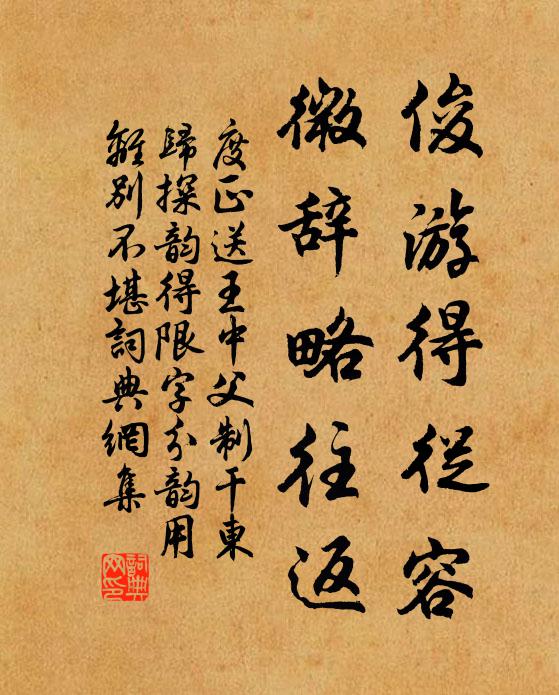 俊游得從容
微辞略往返
度正送王中父制干東
歸探韵得限字分韵用
離别不堪詞典網集
詞典网印